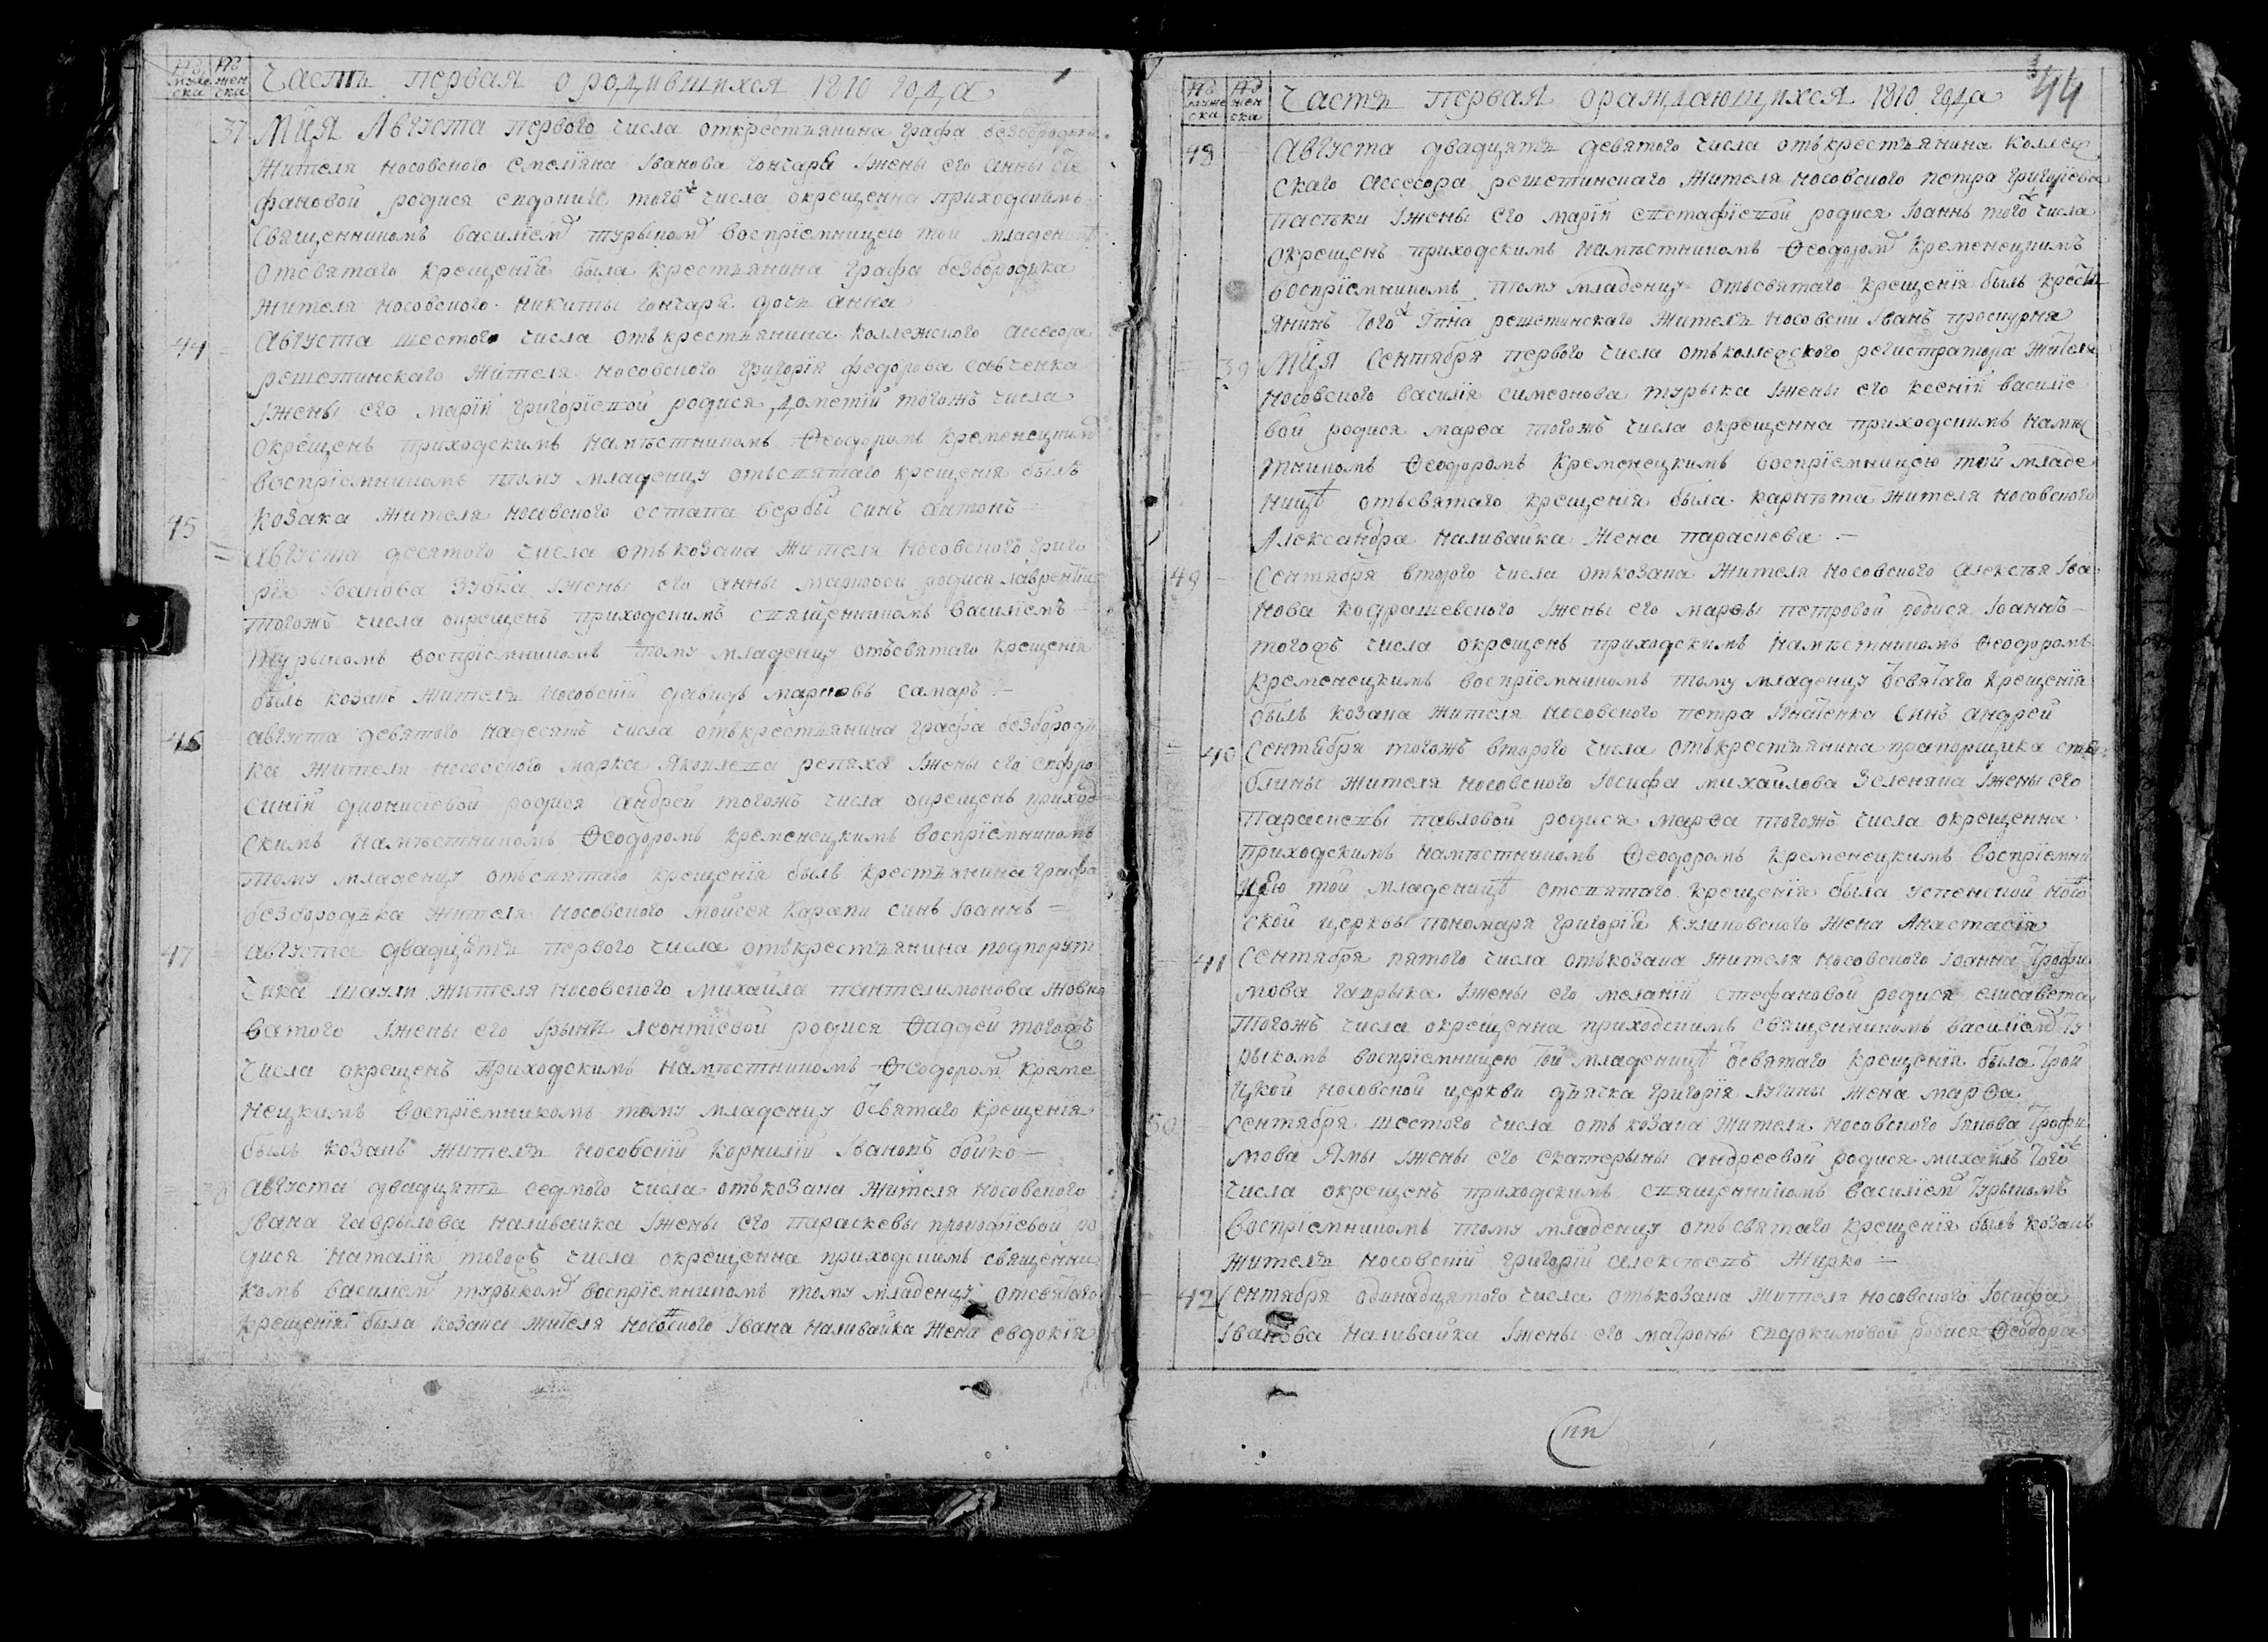 № мужеска № женска Часть первая о родившихся 1810 года
37 Мця Августа первого числа открестьянина графа безбородька
жителя носовского Емелїяна Іванова гончара Іжены его анны сте
фановой родися евдокия того ж числа окрещенна приходскимъ
священникомъ василїем турыком воспрїемницею той младеницѣ
отсвятаго крещенїя была крестьянина графа безбородька
жителя носовского никиты гончара дочь анна
44 Августа шестого числа отъ крестьянина коллежского ассесора
решетинскаго жителя носовского григорїя федорова савченка
Іжены его марїи григорїевой родися дометїй тогожъ числа
окрещенъ приходскимъ намѣстникомъ Ѳеодоромъ кременецким
воспрїемникомъ тому младенцу отъсвятаго крещенїя былъ
козака жителя носовского остапа вербы синъ антонъ
45 Августа десятого числа отъ козака жителя носовского григо
рїя Іоанова зубка Іжены его анны марковой родися лаврентїй
тогожъ числа окрещенъ приходскимъ священникомъ василїемъ
турыкомъ воспрїемникомъ тому младенцу отъсвятаго крещенїя
былъ козакъ житель носовскїй давидъ марковъ самаръ
46 августа девятого надесять числа отъ крестьянина графа безбородь
ка жителя носовского марка Яковлева репяха Іжены его евфро
синїи дионисїевой родися андрей тогожъ числа окрещенъ приход
скимъ намѣстникомъ Ѳеодоромъ кременецкимъ воспрїемникомъ
тому младенцу отъсвятаго крещенїя былъ крестьянина графа
безбородька жителя носовского мойсея карапи синъ Іоаннъ
47 августа двадцять первого числа отъкрестьянина подпорут
чика шаули жителя носовского михайла пантелимонова жовно
ватого Іжены его Ірыны леонтїевой родися Ѳаддей тогожъ
числа окрещенъ приходскимъ намѣстникомъ Ѳеодором креме
нецкимъ воспрїемникомъ тому младенцу Ѿсвятаго крещенїя
былъ козакъ житель носовскїй корнилїй Івановъ бойко
38 августа двадцять седмого числа отъкозака жителя носовского
Івана гаврылова наливайка Іжены его параскевы прокофїевой ро
дися наталїя тогожъ числа окрещенна приходскимъ священни
комъ василїем турыком воспрїемникомъ тому младенцу отсвятаго
крещенїя была козака жителя носовского Івана наливайка жена евдокїя
№ мужеска № женска Часть первая ораждающихся 1810 года 44
48 Августа двадцять девятого числа отъкрестьянина коллеж
скаго ассесора решетинскаго жителя носовского петра григорїева
пастки Іжены его марїи евстафїевой родися Іоаннъ того ж числа
окрещенъ приходскимъ намѣстникомъ Ѳеодором кременецкимъ
воспрїемникомъ тому младенцу отьсвятаго крещенїя былъ кресть
янинъ того ж гпна решетинскаго житель носовски Іванъ проскурня
39 Мця Сентября первого числа отъколлежского регистратора жителя
носовского василїя симеонова турыка Іжены его ксенїи василїе
вой родися марѳа тогожъ числа окрещенна приходскимъ намѣс
тникомъ Ѳеодоромъ кременецкимъ воспрїемницею той младе
ницѣ отьсвятаго крещенїя была карнѣта жителя носовского
Александра наливайка жена параскева
49 Сентября второго числа откозака жителя носовского алексѣя Іва
нова кодрашевского Іжены его марѳы петровой родися Іоаннъ
тогожъ числа окрещенъ приходскимъ намѣстникомъ Ѳеодоромъ
кременецкимъ воспрїемникомъ тому младенцу Ѿсвятаго крещенїя
былъ козака жителя носовского петра Ігнатенка синъ андрей
40 Сентября тогожъ второго числа отъкрестьянина прапорщика
блины жителя носовского Іосифа михайлова зеленяка Іжены его
параскевы павловой родися марѳа тогожъ числа окрещенна
приходскимъ намѣстникомъ Ѳеодоромъ кременецкимъ воспрїемни
цею той младеницѣ отсвятаго крещенїя была успенской носо
ской церквы пономаря григорїя кулиновского жена Анастасїя
41 Сентября пятого числа отъкозака жителя носовского Іоанна трофи
мова гапрыка Іжены его меланїи стефановой родися елисавета
тогожъ числа окрещенна приходскимъ священникомъ василїем ту
рыкомъ воспрїемницею той младеницѣ Ѿсвятаго крещенїя была трой
цкой носовской церкви дьячка григорїя лугины жена марѳа
50 Сентября шестого числа отъ козака жителя носовского Іякова трофи
мова Ямы Іжены его екатерыны андреевой родися михаилъ того ж
числа окрещенъ приходскимъ священникомъ василїем турыкомъ
воспрїемникомъ тому младенцу отъсвятаго крещенїя былъ козакъ
житель носовскїй григорїй алексѣевъ журко
42 Сентября одинадцятого числа отъкозака жителя носовского Іосифа
Іванова наливайка Іжены его матроны евдокимовой родися Ѳеодора